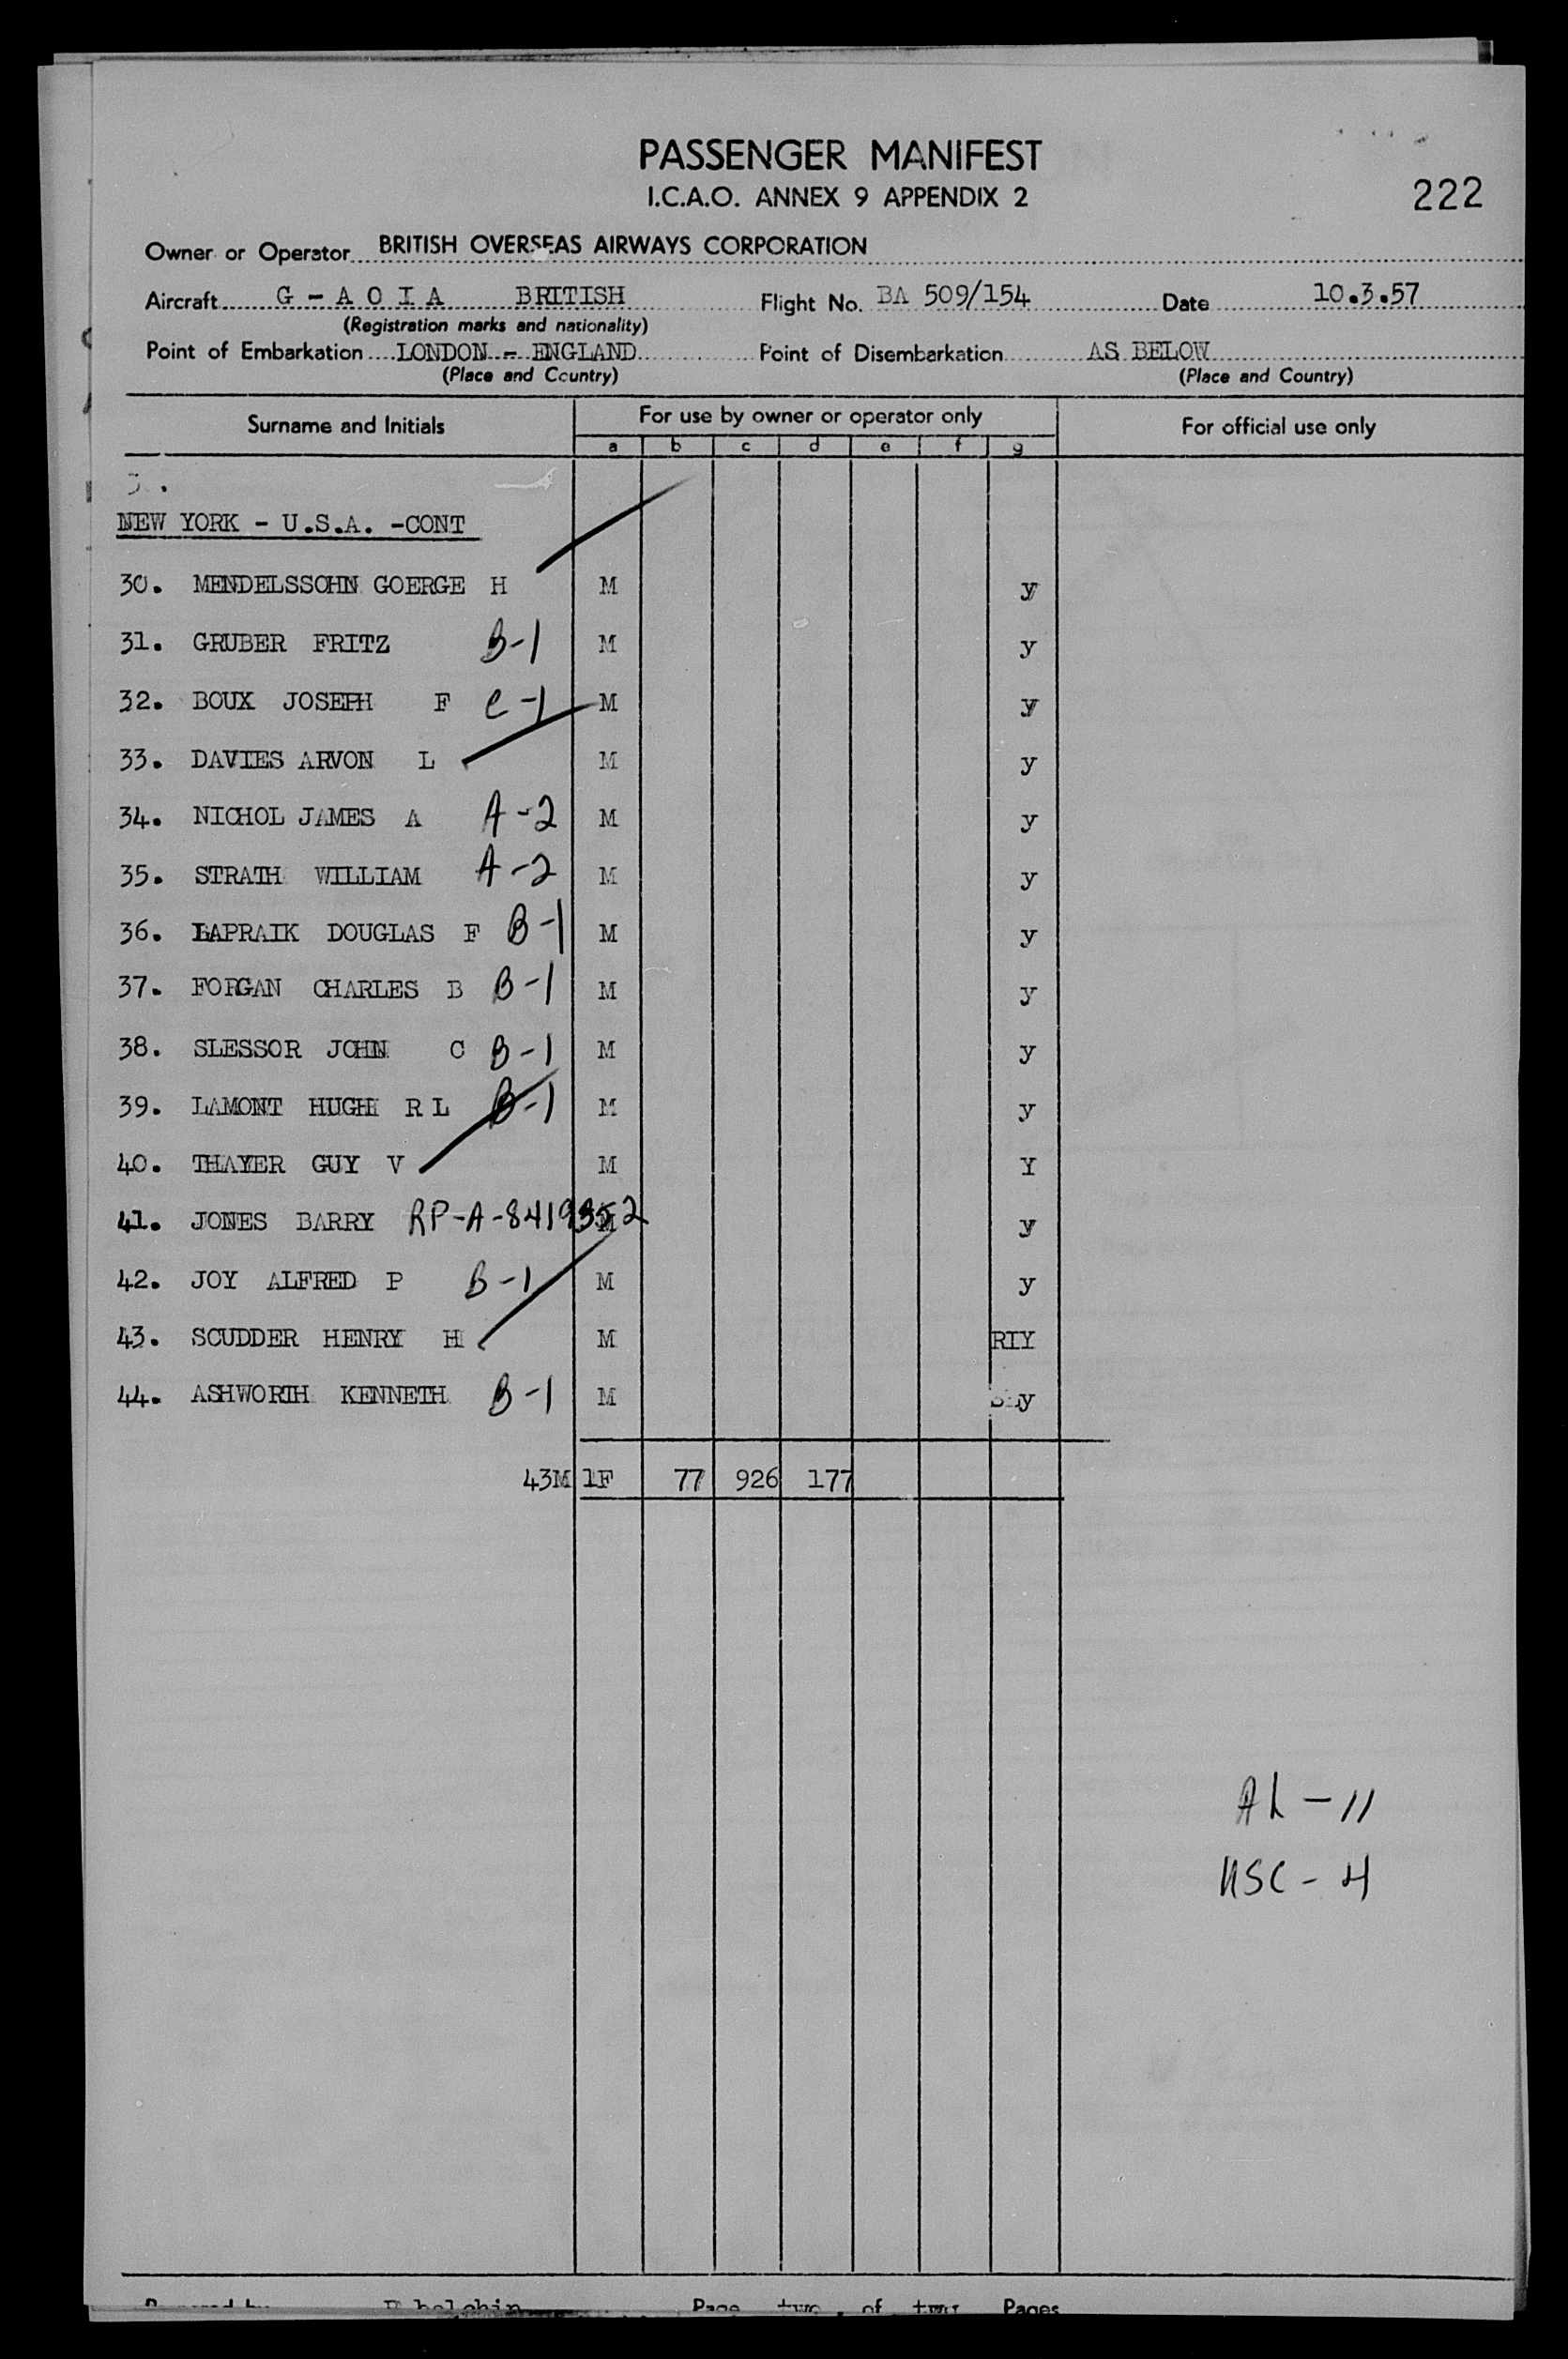 PASSENGER MANIFEST
I.C.A.O. ANNEX 9 APPENDIX 2
222
Owner or Operator BRITISH OVERSEAS AIRWAYS CORPORATION
Aircraft G - A O I A BRITISH Flight No. BA 509/154 Date 10.3.57
(Registration marks and nationality)
Point of Embarkation LONDON - ENGLAND Point of Disembarkation AS BELOW
(Place and Country) (Place and Country)
Surname and Initials For use by owner or operator only For official use only
a b c d e f g
NEW YORK - U.S.A. -CONT
30. MENDELSSOHN GOERGE H M y
31. GRUBER FRITZ B-1 M y
32. BOUX JOSEPH F C-1 M y
33. DAVIES ARVON L M y
34. NICHOL JAMES A A-2 M y
35. STRATH WILLIAM A-2 M y
36. LAPRAIK DOUGLAS F B-1 M y
37. FORGAN CHARLES B B-1 M y
38. SLESSOR JOHN C B-1 M y
39. LAMONT HUGH R L B-1 M y
40. THAYER GUY V M Y
41. JONES BARRY RP-A-8419352 M y
42. JOY ALFRED P B-1 M y
43. SCUDDER HENRY H M RTY
44. ASHWORTH KENNETH B-1 M y
43M 1F 77 926 177
AL - 11
USC - 4
Page two of two Pages